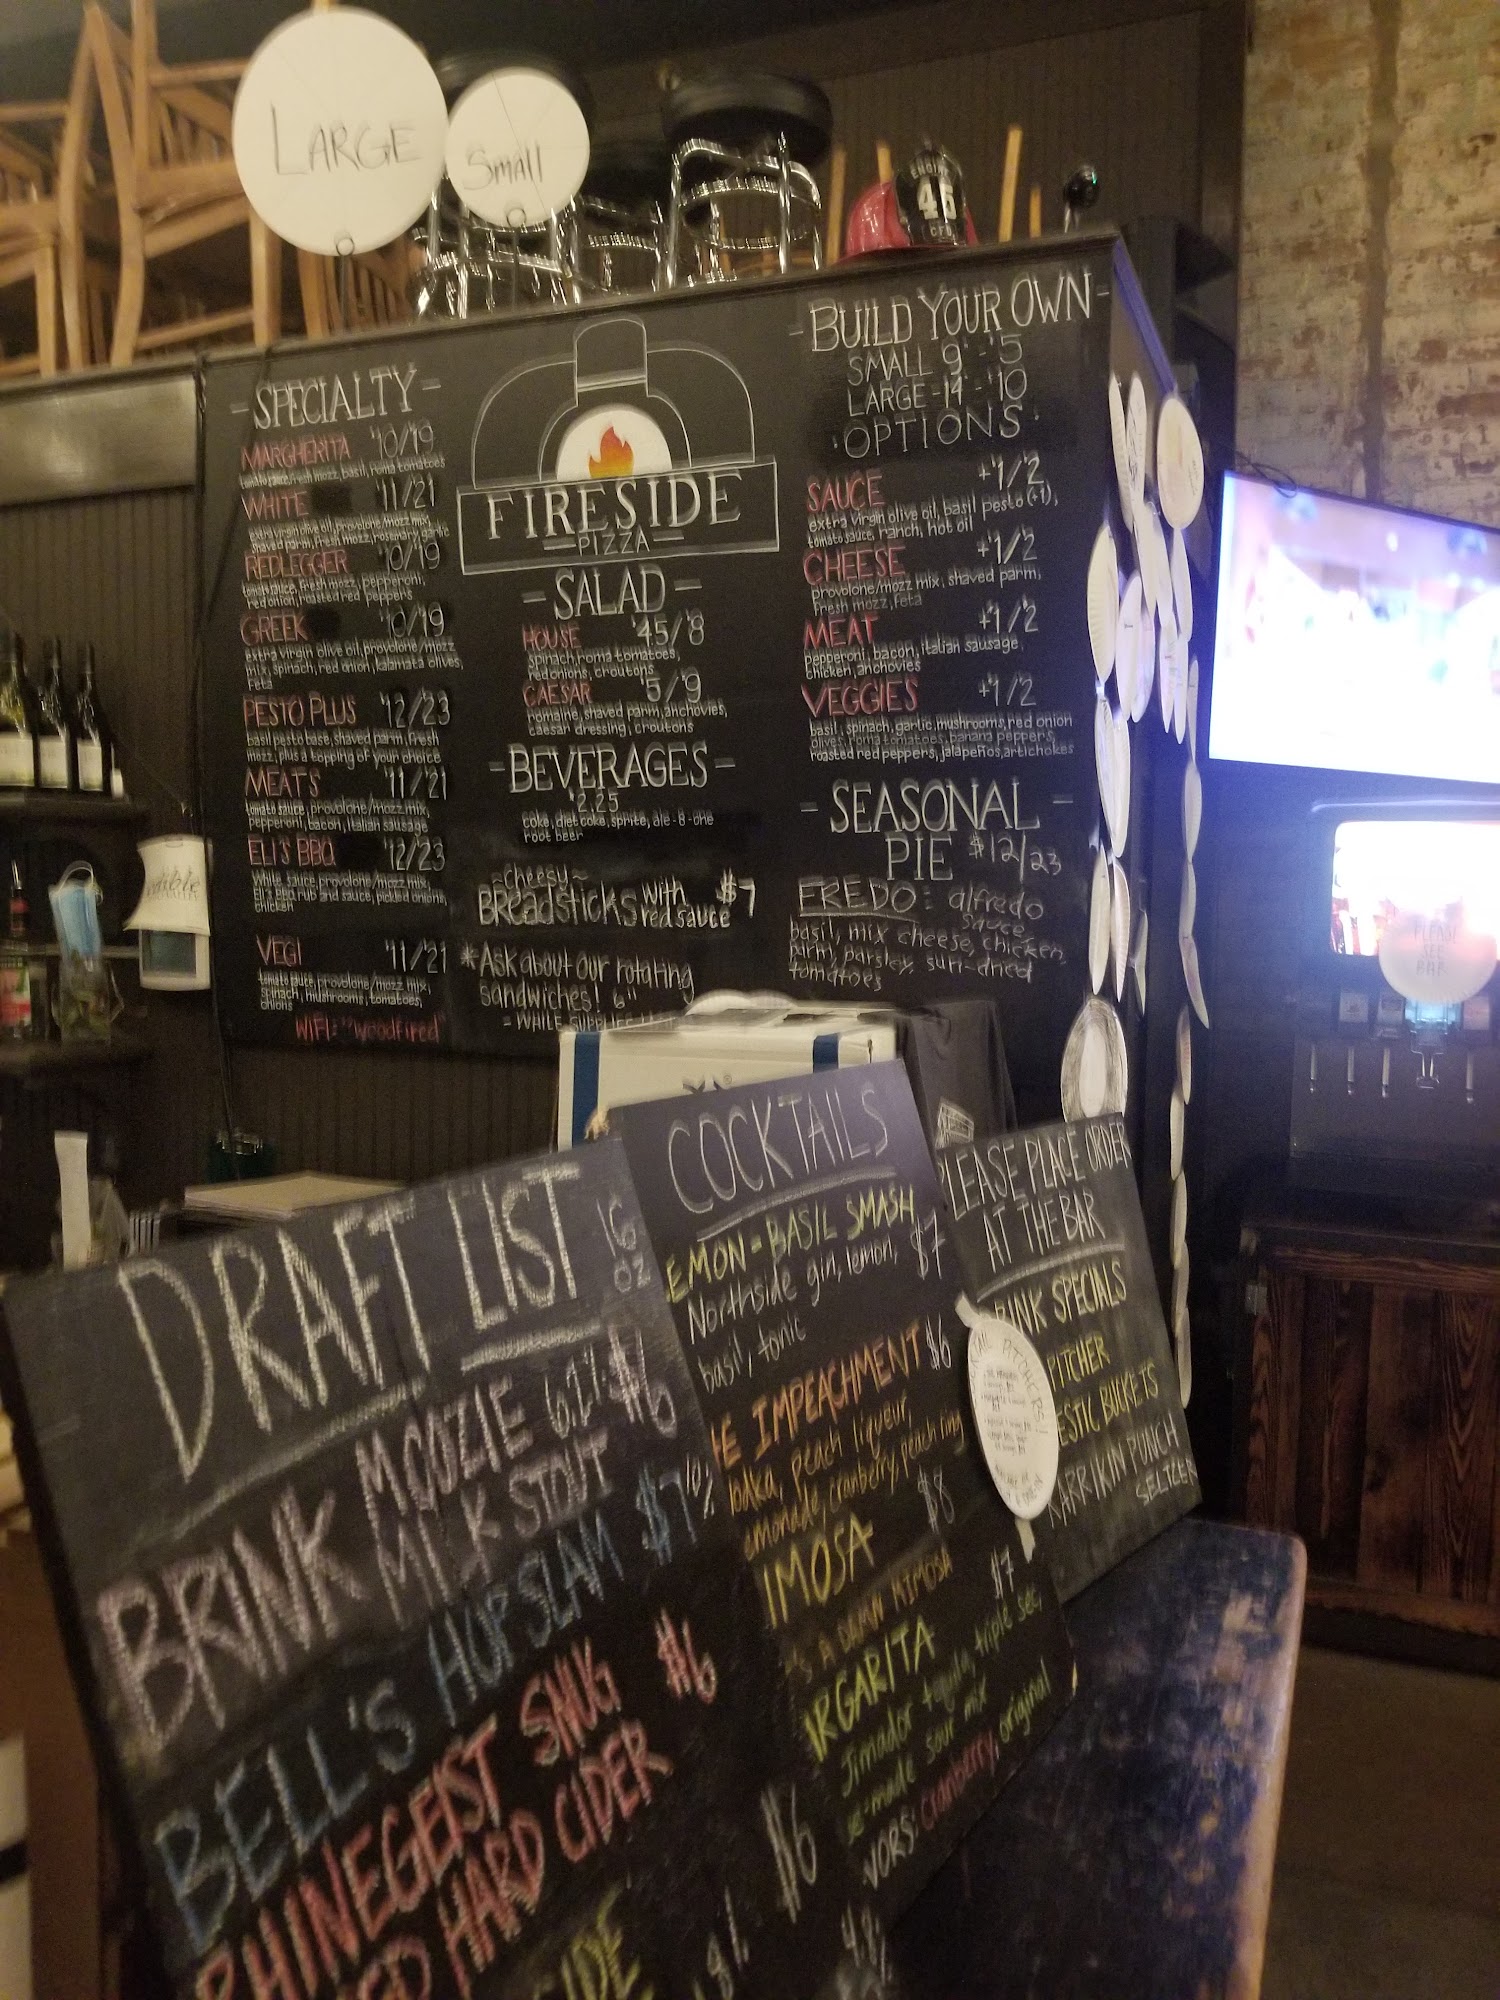 LARGE
Small
ENGINE
45
CFD
- SPECIALTY -
MARGHERITA $10/19
tomato sauce, fresh mozz, basil, roma tomatoes
WHITE $11/21
extra virgin olive oil, provolone/mozz mix,
shaved parm, fresh mozz, rosemary, garlic
REDLEGGER $10/19
tomato sauce, fresh mozz, pepperoni,
red onion, roasted red peppers
GREEK $10/19
extra virgin olive oil, provolone/mozz
mix, spinach, red onion, kalamata olives,
feta
PESTO PLUS $12/23
basil pesto base, shaved parm, fresh
mozz, plus a topping of your choice
MEATS $11/21
tomato sauce, provolone/mozz mix,
pepperoni, bacon, italian sausage
ELI'S BBQ $12/23
White sauce, provolone/mozz mix,
Eli's BBQ rub and sauce, pickled onions,
chicken
VEGI $11/21
tomato sauce, provolone/mozz mix,
spinach, mushrooms, tomatoes,
onions
WIFI: "woodfired"
FIRESIDE
PIZZA
- SALAD -
HOUSE $4.5/8
spinach, roma tomatoes,
red onions, croutons
CAESAR $5/9
romaine, shaved parm, anchovies,
caesar dressing, croutons
- BEVERAGES -
$2.25
coke, diet coke, sprite, ale-8-one
root beer
~cheesy~
Breadsticks with red sauce $7
*Ask about our rotating
sandwiches! 6"
= WHILE SUPPLIES
- BUILD YOUR OWN -
SMALL 9" - $5
LARGE - 14" - $10
· OPTIONS ·
SAUCE +$1/2
extra virgin olive oil, basil pesto (+1),
tomato sauce, ranch, hot oil
CHEESE +$1/2
provolone/mozz mix, shaved parm,
fresh mozz, feta
MEAT +$1/2
pepperoni, bacon, italian sausage,
chicken, anchovies
VEGGIES +$1/2
basil, spinach, garlic, mushrooms, red onion
olives, roma tomatoes, banana peppers,
roasted red peppers, jalapeños, artichokes
- SEASONAL -
PIE $12/23
FREDO: alfredo
sauce,
basil, mix cheese, chicken,
parm, parsley, sun-dried
tomatoes
PLEASE
SEE
BAR
DRAFT LIST 16 OZ
BRINK MOOZIE 6.2% $6
MILK STOUT
BELL'S HOPSLAM $7 10%
RHINEGEIST SNUG $6
HARD CIDER
$6
COCKTAILS
EMON-BASIL SMASH $7
Northside gin, lemon,
basil, tonic
E IMPEACHMENT $6
odka, peach liqueur,
emonade, cranberry, peach ring
IMOSA $8
'S A DAMN MIMOSA
RGARITA $7
Jimador tequila, triple sec,
e-made sour mix
VORS: cranberry, original
PLEASE PLACE ORDER
AT THE BAR
RINK SPECIALS
PITCHER
ESTIC BUCKETS
KARRIKIN PUNCH
SELTZER
PITCHERS!